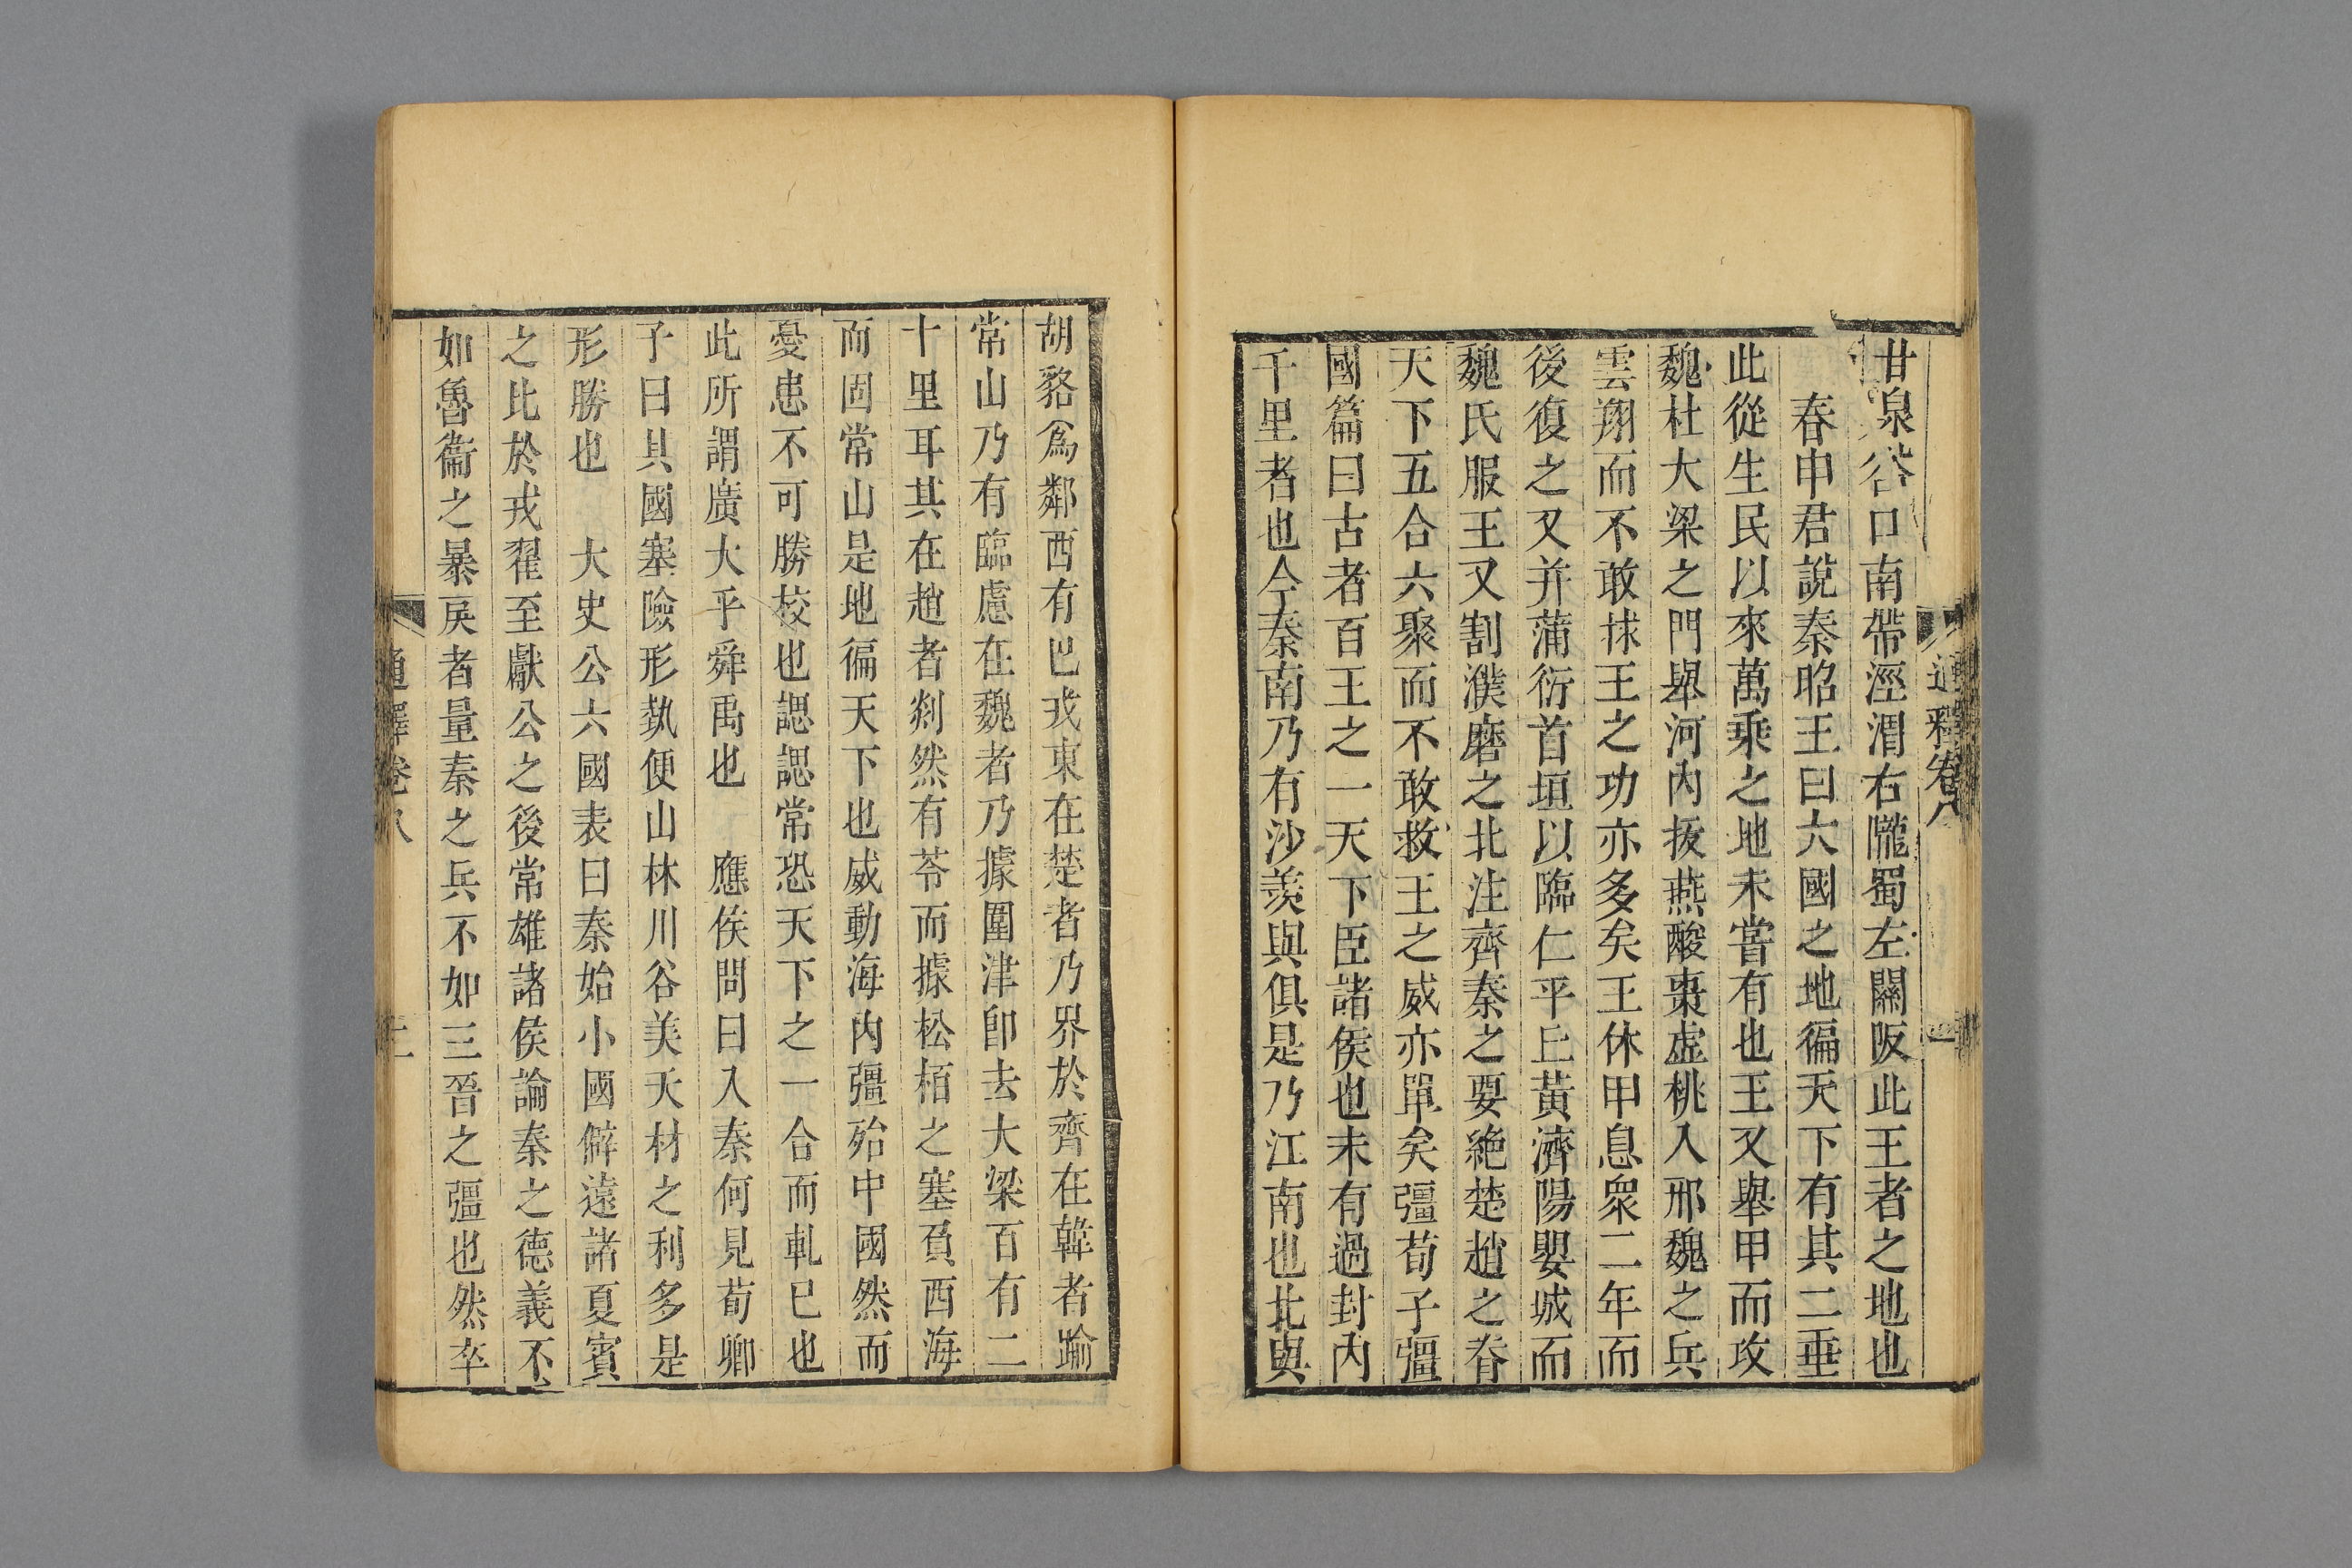 甘泉谷口南帶涇渭右隴蜀左關阪此王者之地也
春申君說秦昭王曰六國之地徧天下有其二垂
此從生民以來萬乘之地未嘗有也王又舉甲而攻
魏杜大梁之門舉河內拔燕酸棗虛桃入邢魏之兵
雲翔而不敢捄王之功亦多矣王休甲息衆二年而
後復之又并蒲衍首垣以臨仁平丘黃濟陽嬰城而
魏氏服王又割濮磨之北注齊秦之要絶楚趙之脊
天下五合六聚而不敢救王之威亦單矣彊荀子彊
國篇曰古者百王之一天下臣諸侯也未有過封內
千里者也今秦南乃有沙羨與俱是乃江南也北與
通釋卷八
胡貉為鄰西有巴戎東在楚者乃界於齊在韓者踰
常山乃有臨慮在魏者乃據圍津卽去大梁百有二
十里耳其在趙者剡然有苓而據松栢之塞負西海
而固常山是地徧天下也威動海內彊殆中國然而
憂患不可勝校也諰諰常恐天下之一合而軋已也
此所謂廣大乎舜禹也 應侯問曰入秦何見荀卿
子曰其國塞險形埶便山林川谷美天材之利多是
形勝也 大史公六國表曰秦始小國僻遠諸夏賓
之比於戎翟至獻公之後常雄諸侯論秦之德義不
如魯衞之暴戾者量秦之兵不如三晉之彊也然卒
通釋卷八